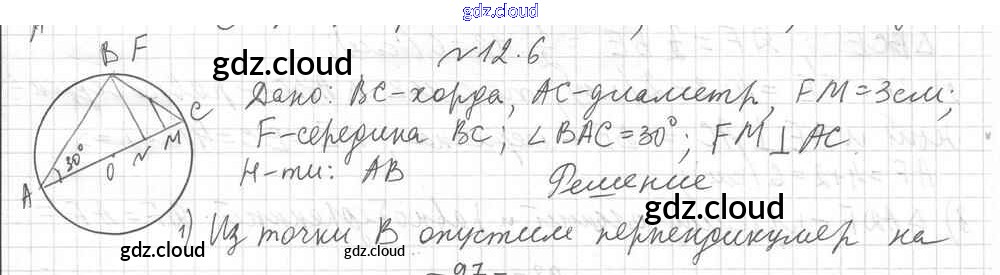 gdz.cloud
B F
№12.6
gdz.cloud
C
Дано: BC-хорда, AC-диаметр, FM=3см;
gdz.cloud
30° O N M
F-середина BC; ∠BAC=30°; FM⊥AC.
A
Н-ти: AB
Решение
gdz.cloud
1) Из точки B опустим перпендикуляр на
gdz.cloud
gdz.cloud
-97-
gdz.cloud